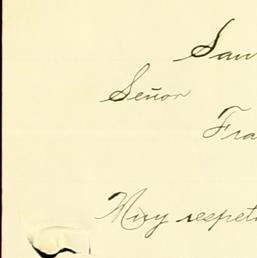 San
Señor
Fra
Muy respet